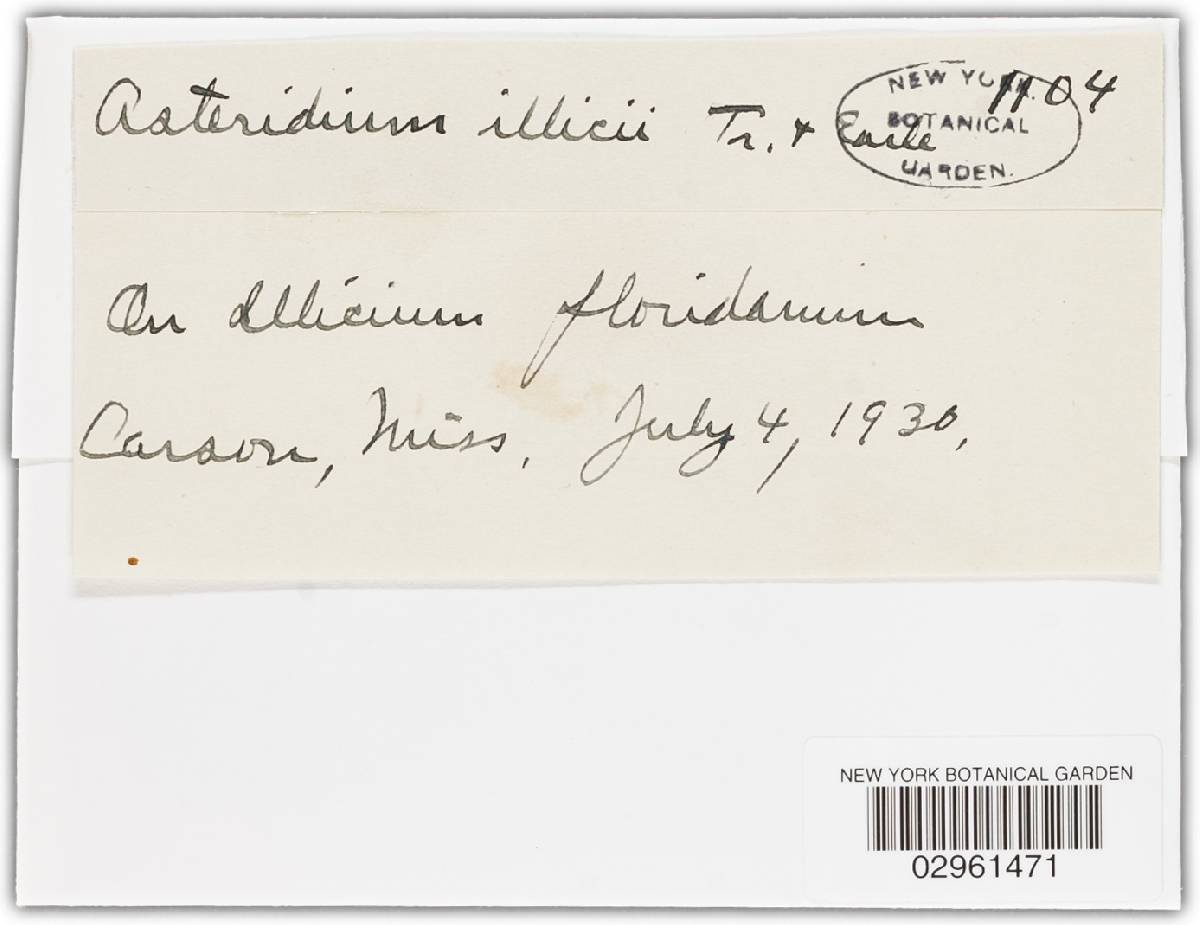 Asteridium illicii Tr. & Earle 1104
NEW YORK
BOTANICAL
GARDEN.
On Illicium floridanum
Carson, Miss, July 4, 1930,
NEW YORK BOTANICAL GARDEN
02961471